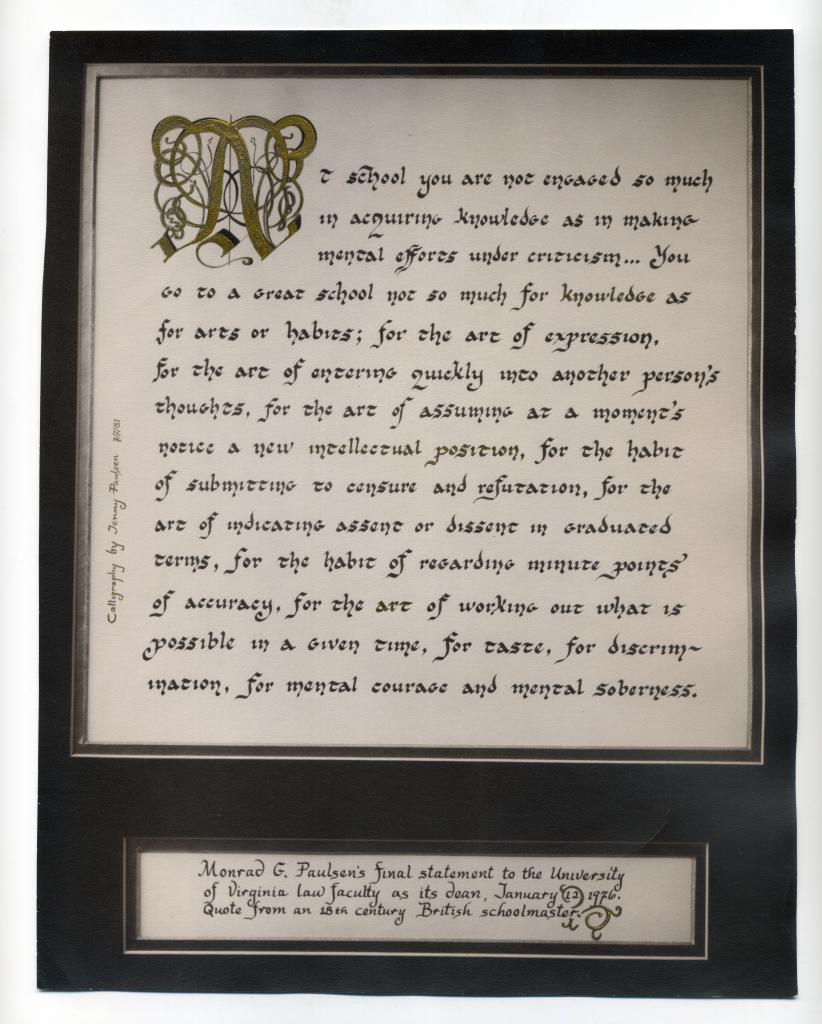 At school you are not engaged so much
in acquiring knowledge as in making
mental efforts under criticism... You
go to a great school not so much for knowledge as
for arts or habits; for the art of expression,
for the art of entering quickly into another person's
thoughts, for the art of assuming at a moment's
notice a new intellectual position, for the habit
of submitting to censure and refutation, for the
art of indicating assent or dissent in graduated
terms, for the habit of regarding minute points
of accuracy, for the art of working out what is
possible in a given time, for taste, for discrim~
ination, for mental courage and mental soberness.
Calligraphy by Jenny Paulsen 7/7/81
Monrad G. Paulsen's final statement to the University
of Virginia law faculty as its dean, January 12 1976.
Quote from an 18th century British schoolmaster.